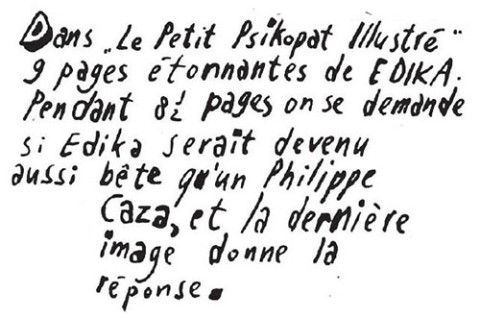 Dans „Le Petit Psikopat Illustré"
9 pages étonnantes de EDIKA.
Pendant 8½ pages on se demande
si Edika serait devenu
aussi bête qu'un Philippe
Caza, et la dernière
image donne la
réponse.